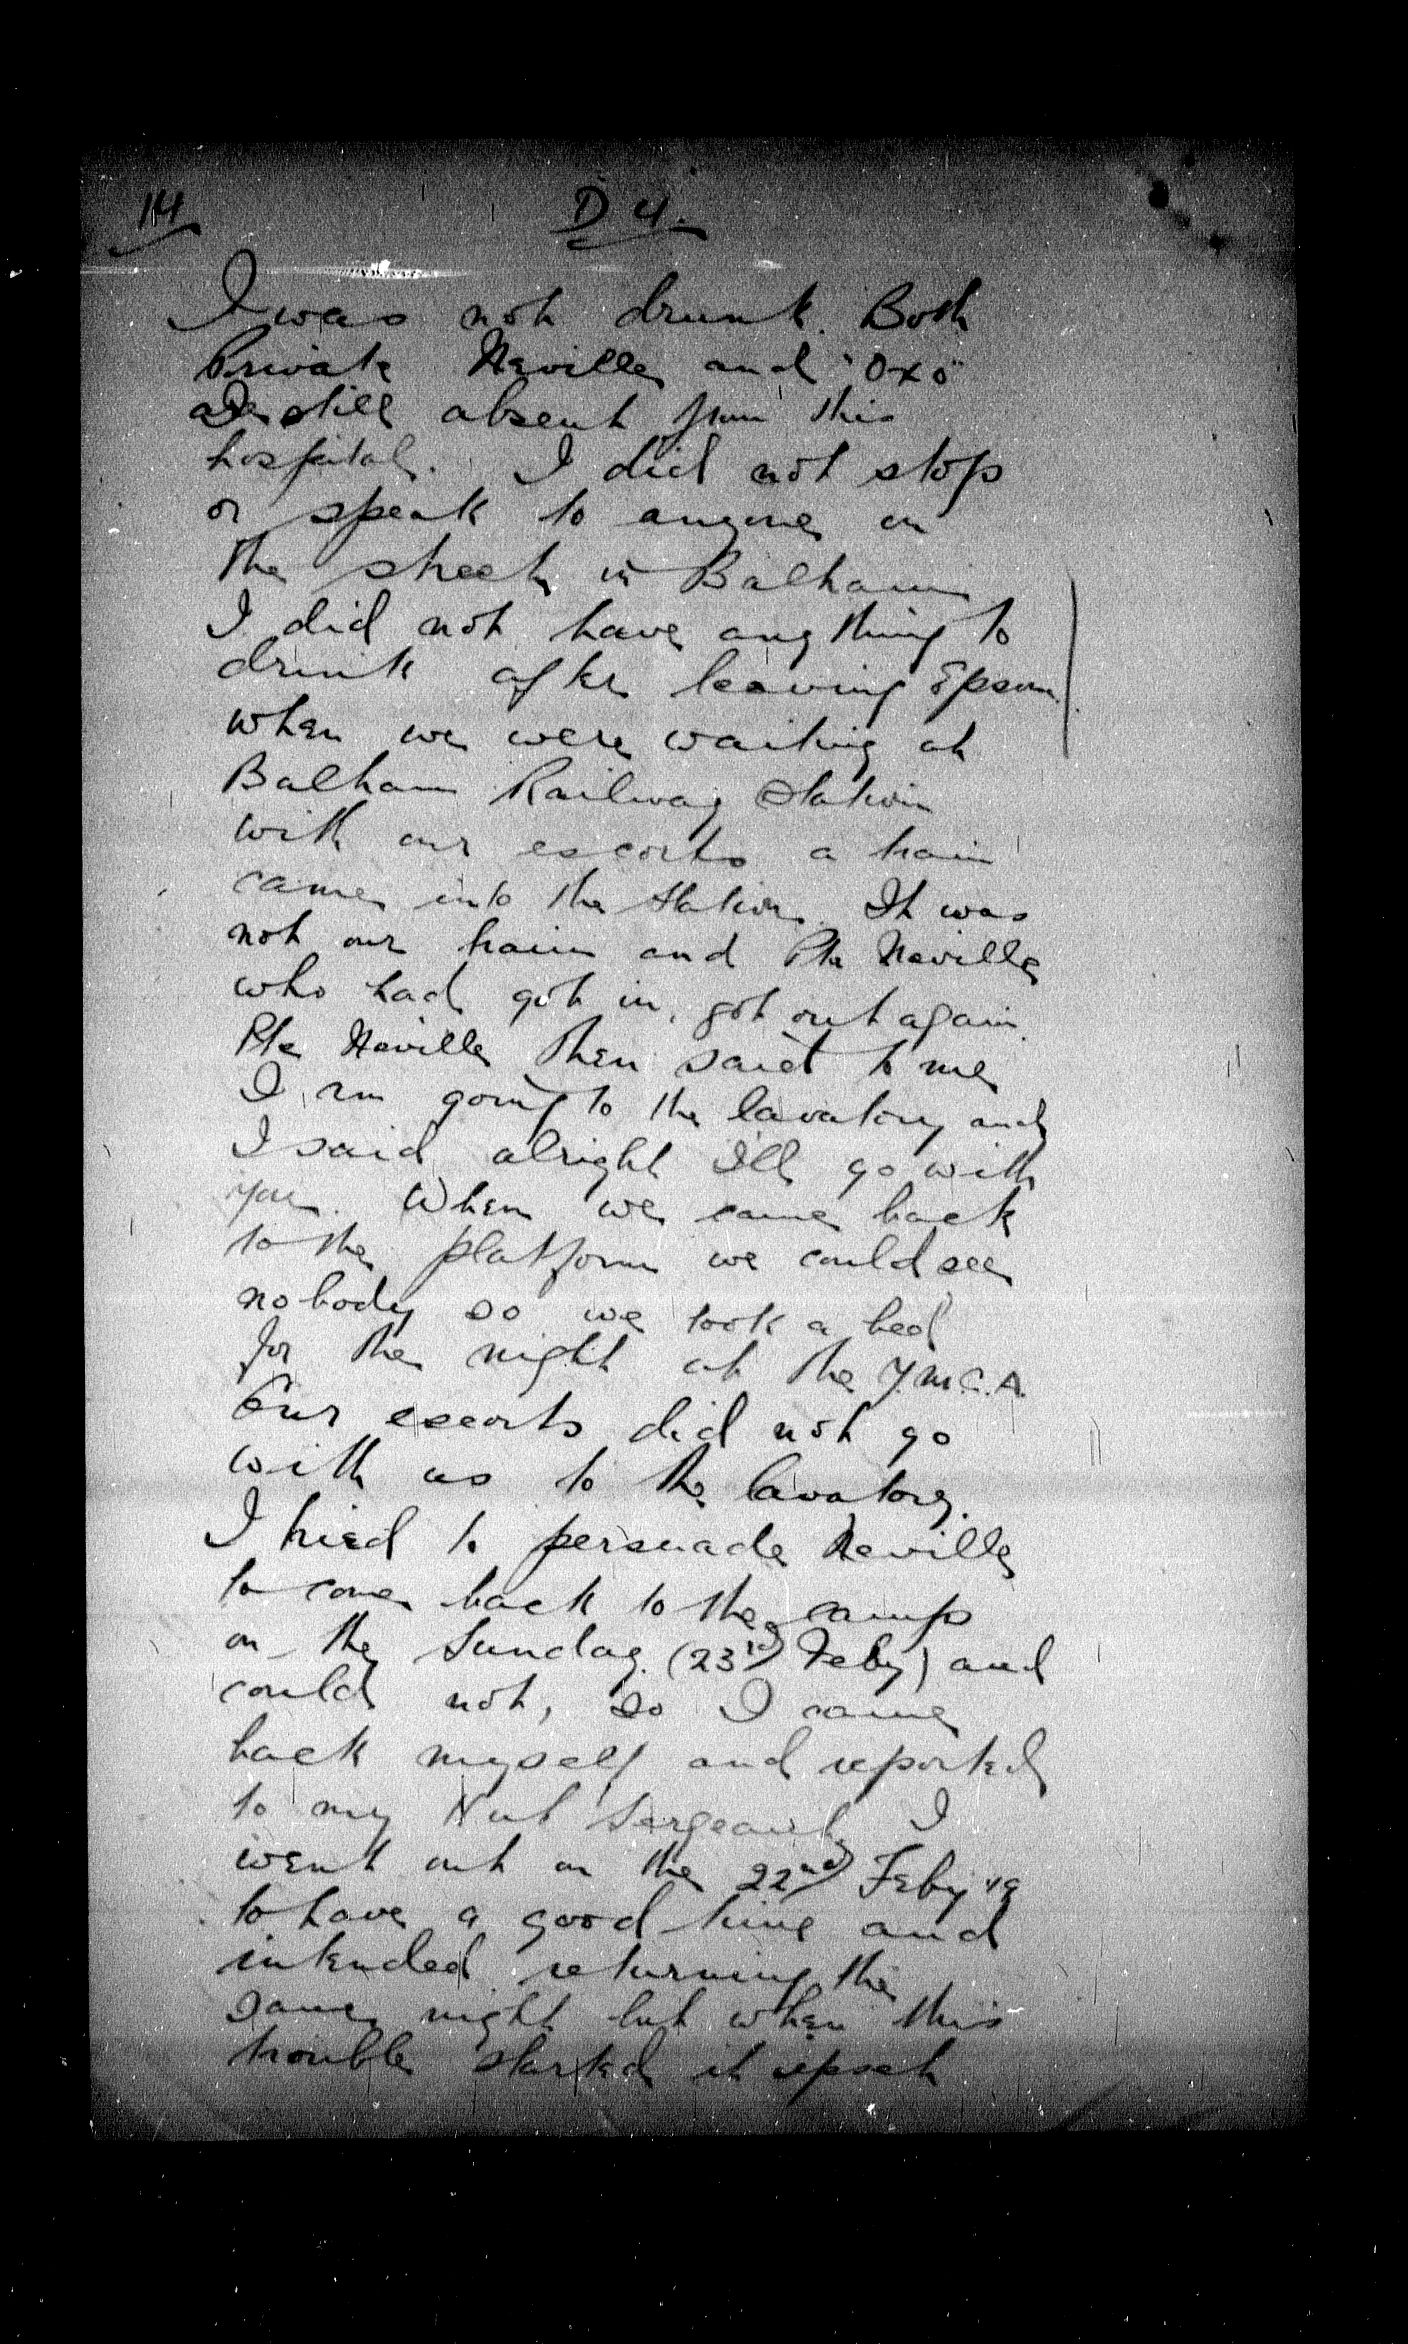 14
D 4.
I was not drunk. Both
Private Neville and "Oxo"
are still absent from this
hospital. I did not stop
or speak to anyone on
the street in Balham
I did not have anything to
drink after leaving Epsom.
when we were waiting at
Balham Railway Station
with our escorts a train
came into the station. It was
not our train and Pte Neville
who had got in, got out again
Pte Neville then said to me
I am going to the lavatory and
I said alright I'll go with
you. When we came back
to the platform we could see
nobody so we took a bed
for the night at the Y.M.C.A.
Our escorts did not go
with us to the lavatory.
I tried to persuade Neville
to come back to the camp
on the Sunday (23rd Feby) and
could not, so I came
back myself and reported
to my Hut Sergeant. I
went out on the 22nd Feby '19
to have a good time and
intended returning the
same night but when this
trouble started it upset